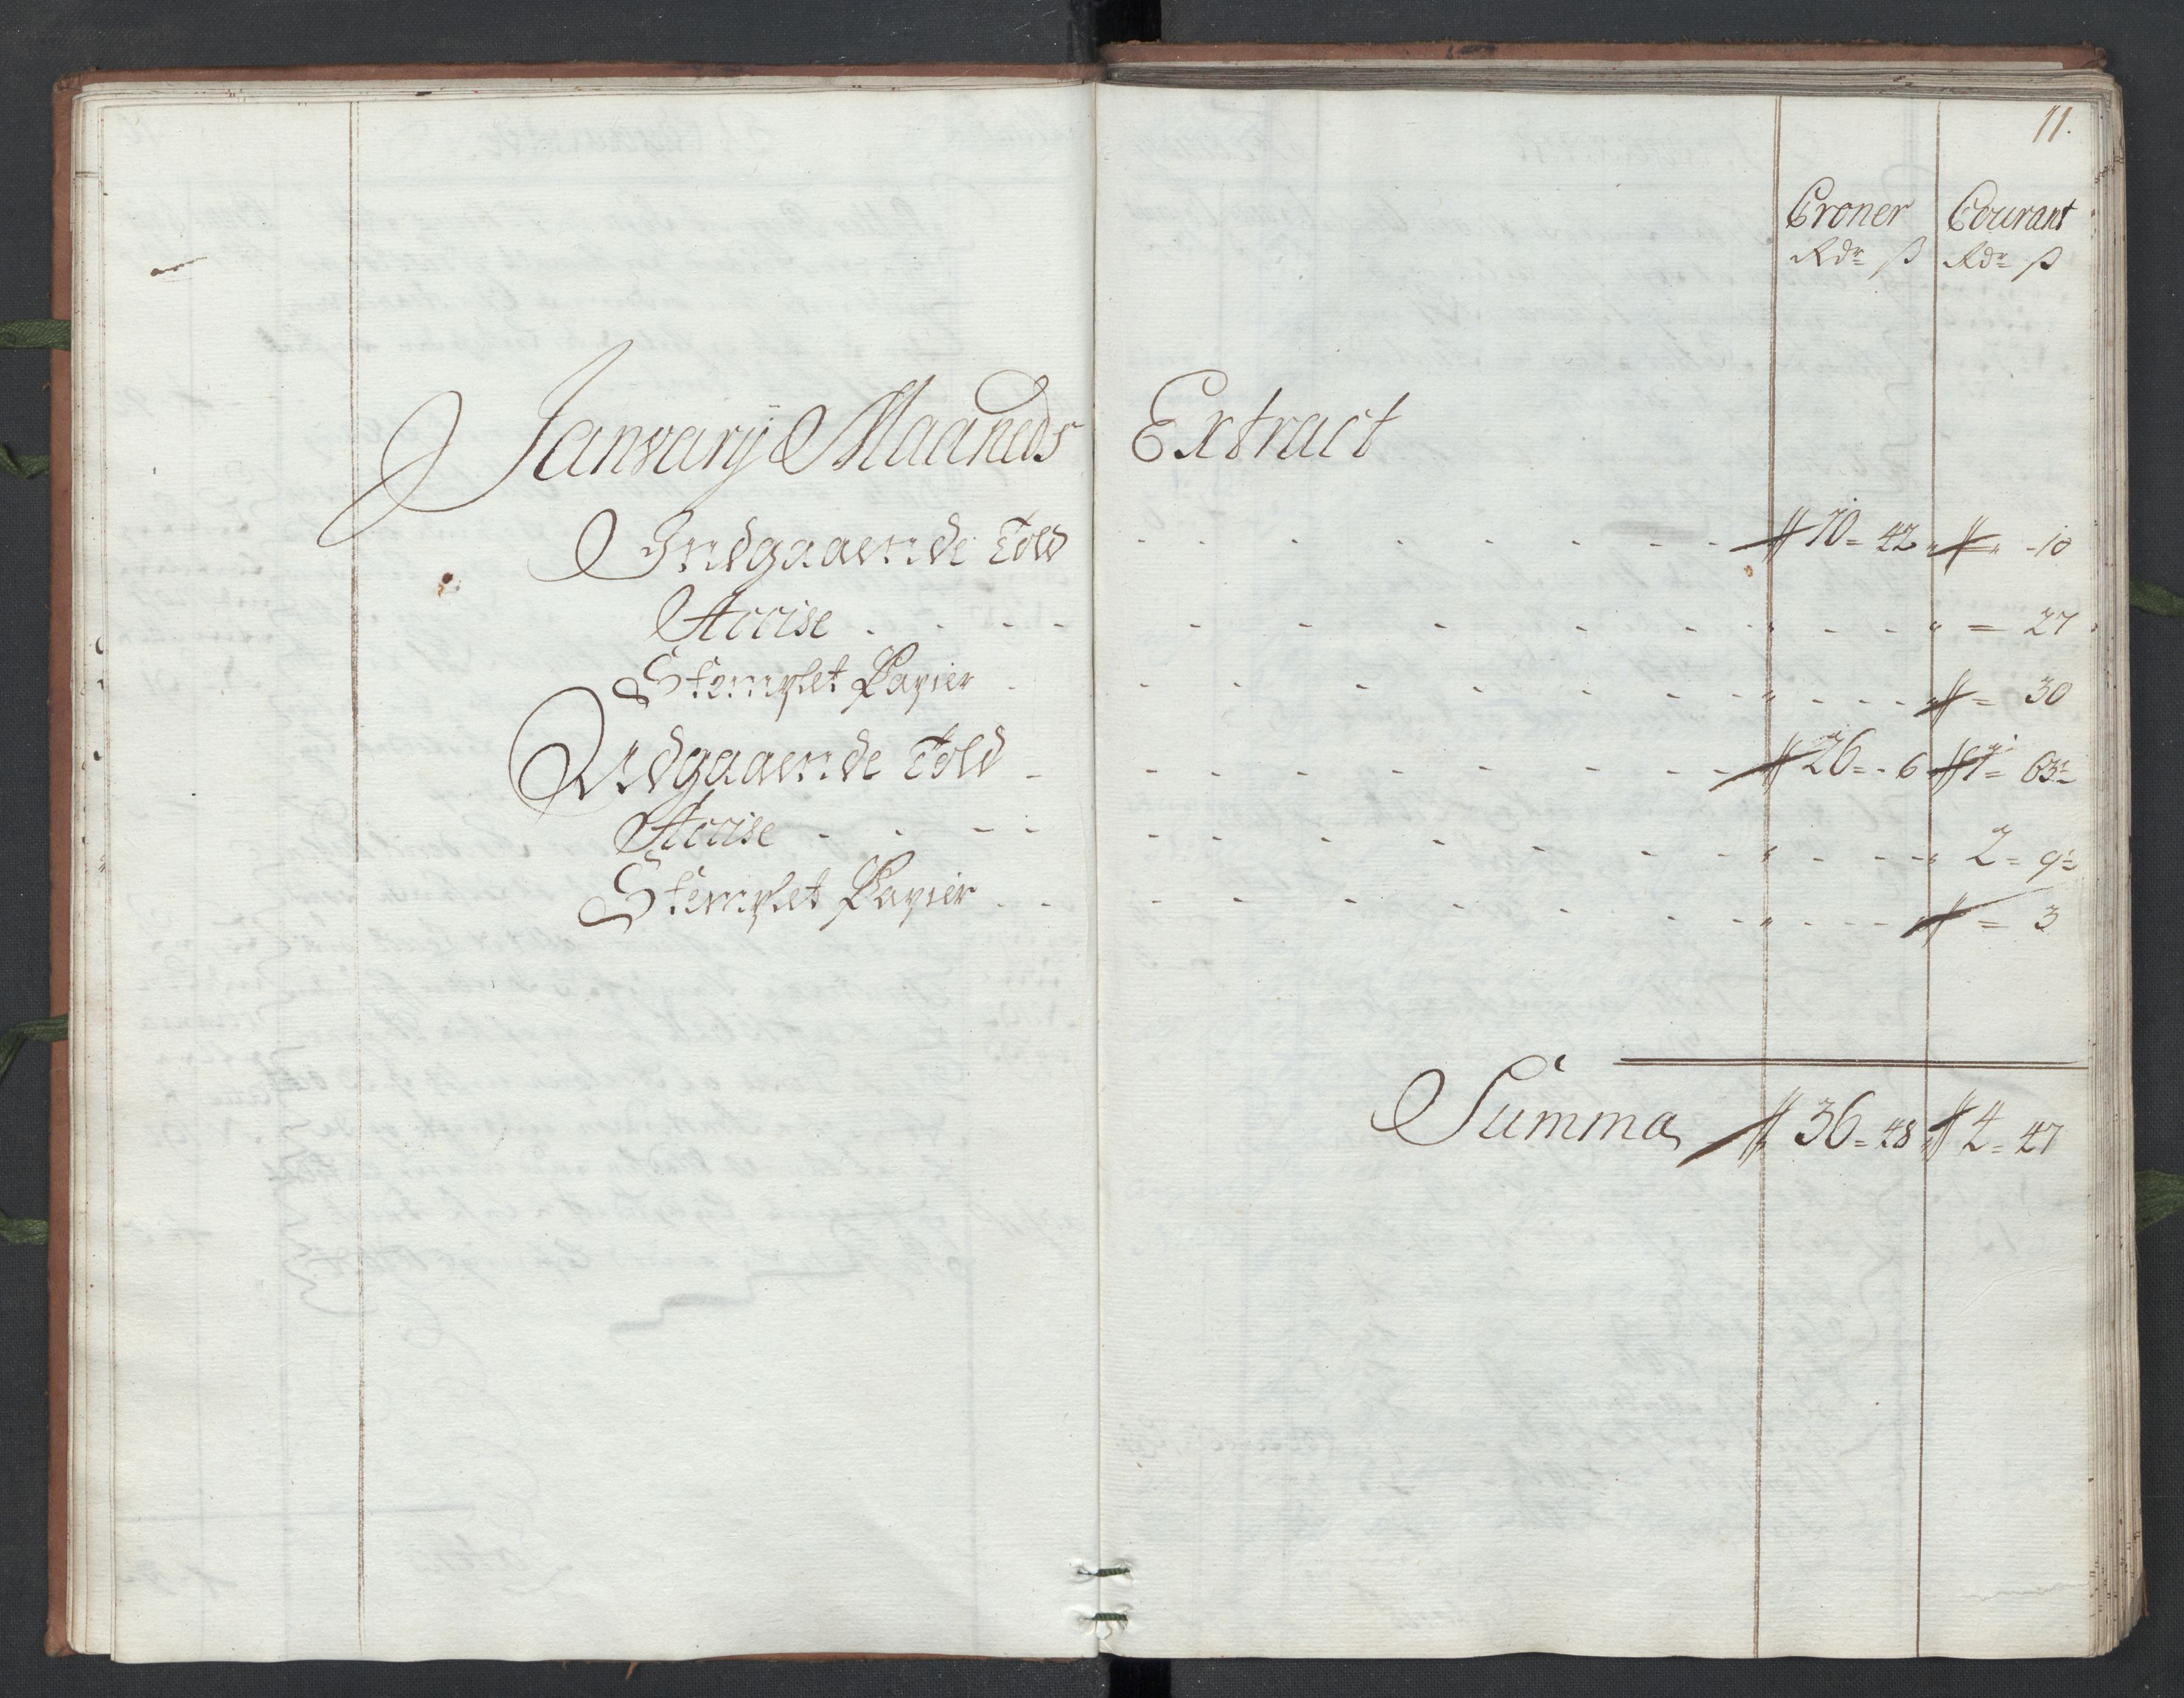 11.
Croner Courant
Rdr ß Rdr ß
Janvarij Maaneds Extract
Indgaaende Told - - - - - - - - - 10 = 42 " - 10
Accise - - - - - - - - - - " - - - " = 27
Stemplet Papier - - - - - - - - " - - - - " = 30
Udgaaende Told - - - - - - - - - 26 = - 6 1 = 63½
Accise - - - - - - - - - - " - - - - " 2 = 9½
Stemplet Papier - - - - - - - - - " - - - - " = 3
Summa 36 = 48 4 = 47